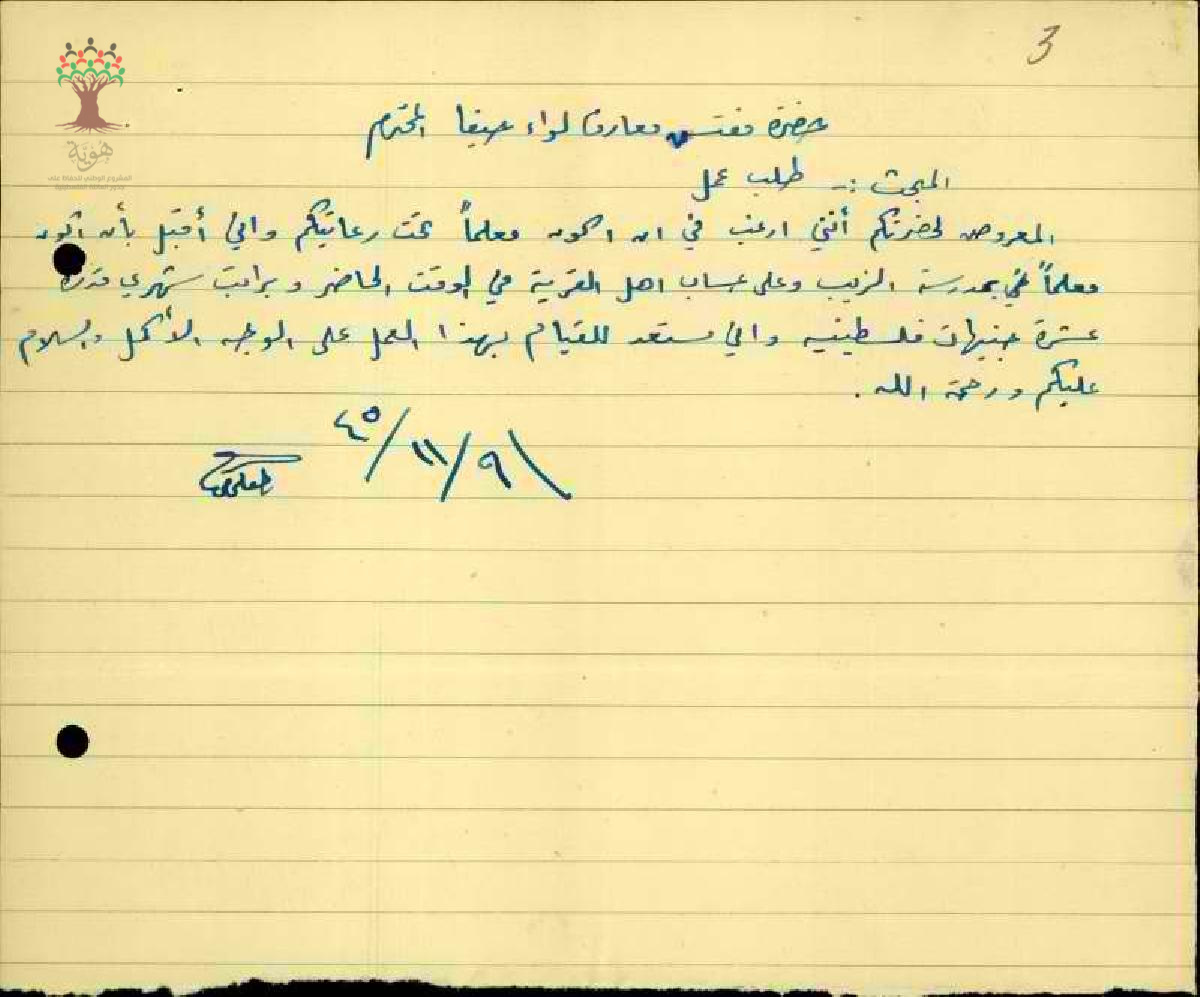 3
هوية
المشروع الوطني للحفاظ على
جذور العائلة الفلسطينية
حضرة مفتش معارف لواء حيفا المحترم
المبحث :- طلب عمل
المعروض لحضرتكم أنني ارغب في ان اكون معلماً تحت رعايتكم واني أقبل بأن اكون
معلماً في مدرسة الزيب وعلى حساب اهل القرية في الوقت الحاضر وبراتب شهري قدره
عشرة جنيهات فلسطينيه واني مستعد للقيام بهذا العمل على الوجه الأكمل والسلام
عليكم ورحمة الله .
٩/١١/٤٥